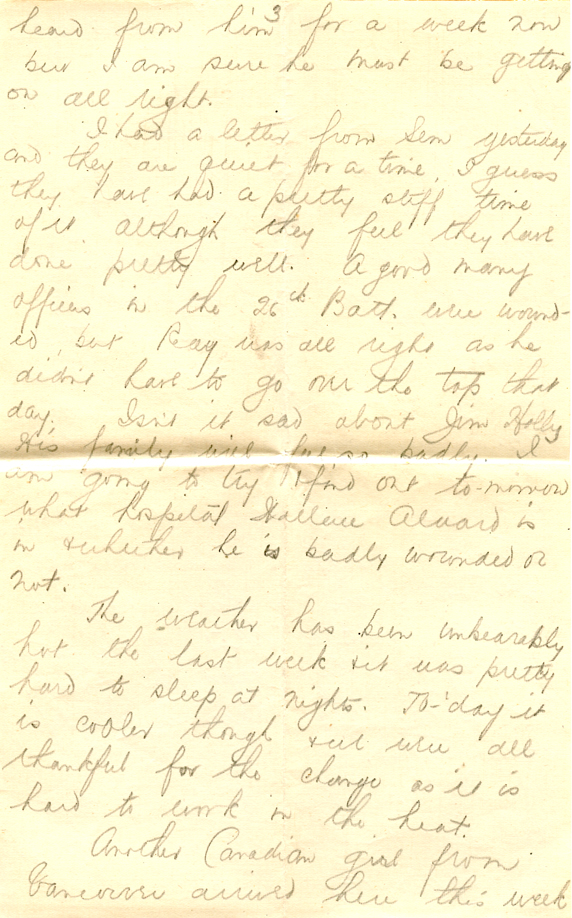 3
heard from him for a week now
but I am sure he must be getting
on all right.
I had a letter from Sem yesterday
and they are quiet for a time. I guess
they have had a pretty stiff time
of it although they feel they have
done pretty well. A good many
officers in the 26th Batt. were wound-
ed, but Ray was all right as he
didn't have to go over the top that
day. Isn't it sad about Jim Holly
His family will feel so badly. I
am going to try & find out to-morrow
what hospital Wallace Alward is
in & whether he is badly wounded or
not.
The weather has been unbearably
hot the last week & it was pretty
hard to sleep at nights. To-day it
is cooler though & we were all
thankful for the change as it is
hard to work in the heat.
Another Canadian girl from
Vancouver arrived here this week